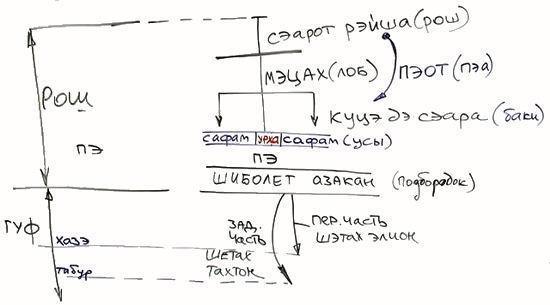 СЭАРОТ РЭЙША (РОШ)
МЭЦАХ (ЛОБ)
ПЭОТ (ПЭА)
РОШ
КУЦЭ ДЭ СЭАРА (БАКИ)
САФАМ УРХА САФАМ (УСЫ)
ПЭ
ПЭ
ШИБОЛЕТ АЗАКАН (ПОДБОРОДОК)
ГУФ
ЗАД. ЧАСТЬ
ШЕТАХ ТАХТОН
ПЕР. ЧАСТЬ
ШЭТАХ ЭЛИОН
ХАЗЭ
ТАБУР